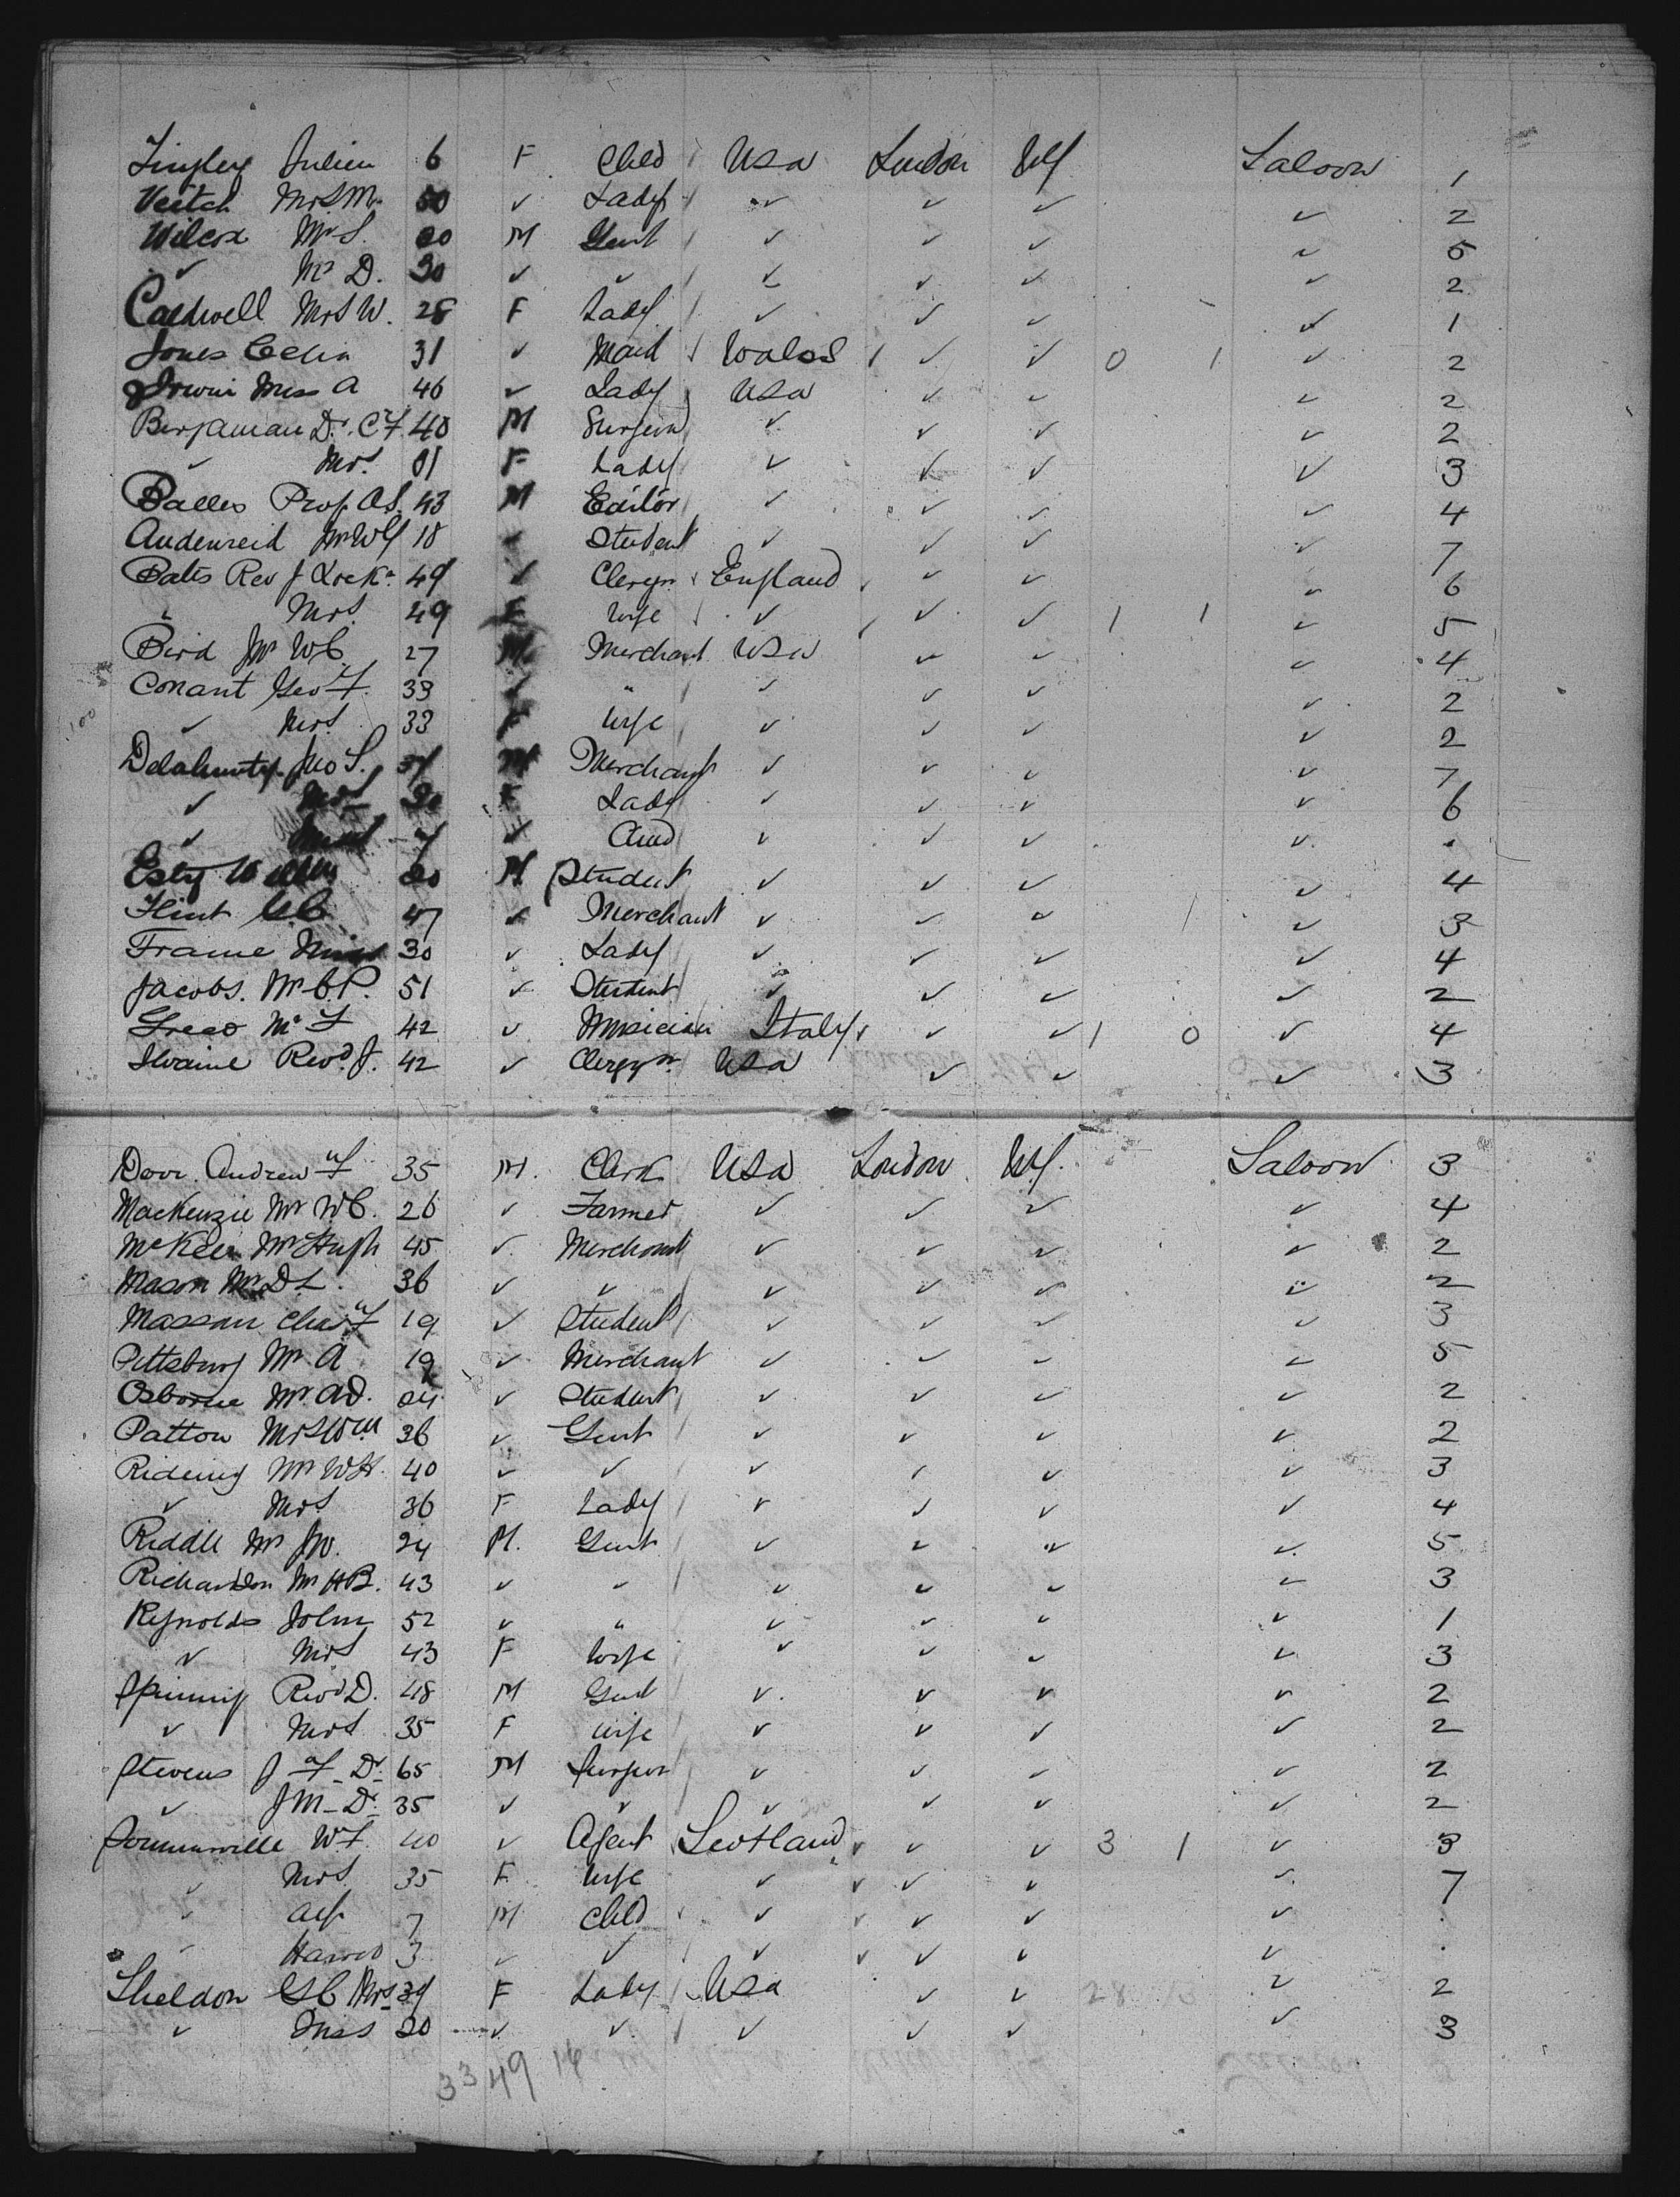 Julien 6 F Child USA London NY Saloon 1
Veitch Mrs M. 50 ✓ Lady ✓ ✓ ✓ ✓ 2
Wilcox Mr S. M Gent ✓ ✓ ✓ ✓ 5
✓ Mr D. 30 ✓ ✓ ✓ ✓ ✓ ✓ 2
Caldwell Mrs W. 28 F Lady ✓ ✓ ✓ ✓ 1
Jones Celia 31 ✓ Maid Wales ✓ ✓ 0 1 ✓ 2
Irwin Miss A 46 ✓ Lady USA ✓ ✓ ✓ 2
Benjaman Dr. C F. 40 M Surgeon ✓ ✓ ✓ ✓ 2
✓ Mrs. F Lady ✓ ✓ ✓ ✓ 3
Prof. A S. 43 M Editor ✓ ✓ ✓ ✓ 4
Audenreid Mr W 18 ✓ Student ✓ ✓ ✓ ✓ 7
Bates Rev J 49 ✓ Clergn England ✓ ✓ ✓ 6
" Mrs. 49 F Wife ✓ ✓ ✓ 1 1 ✓ 5
Bird Mr W C 27 M Merchant USA ✓ ✓ ✓ 4
Conant Geo F. 33 ✓ " ✓ ✓ ✓ ✓ 2
✓ Mrs. 33 F Wife ✓ ✓ ✓ ✓ 2
Delahunty Jno S. M Merchant ✓ ✓ ✓ ✓ 7
✓ Mrs F Lady ✓ ✓ ✓ ✓ 6
✓ ✓ Child ✓ ✓ ✓ ✓ .
Esty M Student ✓ ✓ ✓ ✓ 4
Flint G C 47 ✓ Merchant ✓ ✓ ✓ ✓ 3
Frame Miss 30 ✓ Lady ✓ ✓ ✓ ✓ 4
Jacobs. Mr C. P. 51 ✓ Student ✓ ✓ ✓ ✓ 2
Greco Mr F 42 ✓ Musician Italy ✓ ✓ 1 0 ✓ 4
Swaine Revd. J. 42 ✓ Clergyn. USA ✓ ✓ ✓ 3
Dorr. Andrew F 35 M. Clerk USA London NY. Saloon 3
MacKenzie Mr W C. 26 ✓ Farmer ✓ ✓ ✓ ✓ 4
McKeen Mr Hugh 45 ✓ Merchant ✓ ✓ ✓ ✓ 2
Mason Mr D L. 36 ✓ ✓ ✓ ✓ ✓ ✓ 2
Massan Chas F 19 ✓ Student ✓ ✓ ✓ ✓ 3
Pittsburg Mr A 19 ✓ Merchant ✓ ✓ ✓ ✓ 5
Osborne Mr A D. 24 ✓ Student ✓ ✓ ✓ ✓ 2
Patton Mr S Wm 36 ✓ Gent ✓ ✓ ✓ ✓ 2
Rideing Mr W H. 40 ✓ ✓ ✓ ✓ ✓ ✓ 3
✓ Mrs 36 F Lady ✓ ✓ ✓ ✓ 4
Riddle Mr J W. 24 M. Gent ✓ ✓ ✓ ✓ 5
Richardson Mr H B. 43 ✓ ✓ ✓ ✓ ✓ ✓ 3
Reynolds John 52 ✓ " ✓ ✓ ✓ ✓ 1
✓ Mrs 43 F Wife ✓ ✓ ✓ ✓ 3
Spinnig Revd D. 48 M Gent ✓ ✓ ✓ ✓ 2
✓ Mrs 35 F Wife ✓ ✓ ✓ ✓ 2
Stevens J F Dr. 65 M Surgeon ✓ ✓ ✓ ✓ 2
✓ J M Dr. 35 ✓ ✓ ✓ ✓ ✓ ✓ 2
Sommerville W F. 40 ✓ Agent Scotland ✓ ✓ 3 1 ✓ 3
✓ Mrs. 35 F Wife ✓ ✓ ✓ ✓ 7
✓ 7 M Child ✓ ✓ ✓ ✓ .
✓ Harold 3 ✓ ✓ ✓ ✓ ✓ ✓ .
Sheldon G C Mrs 39 F Lady USA ✓ ✓ ✓ 2
✓ Miss 20 ✓ ✓ ✓ ✓ ✓ ✓ 3
33 49 16